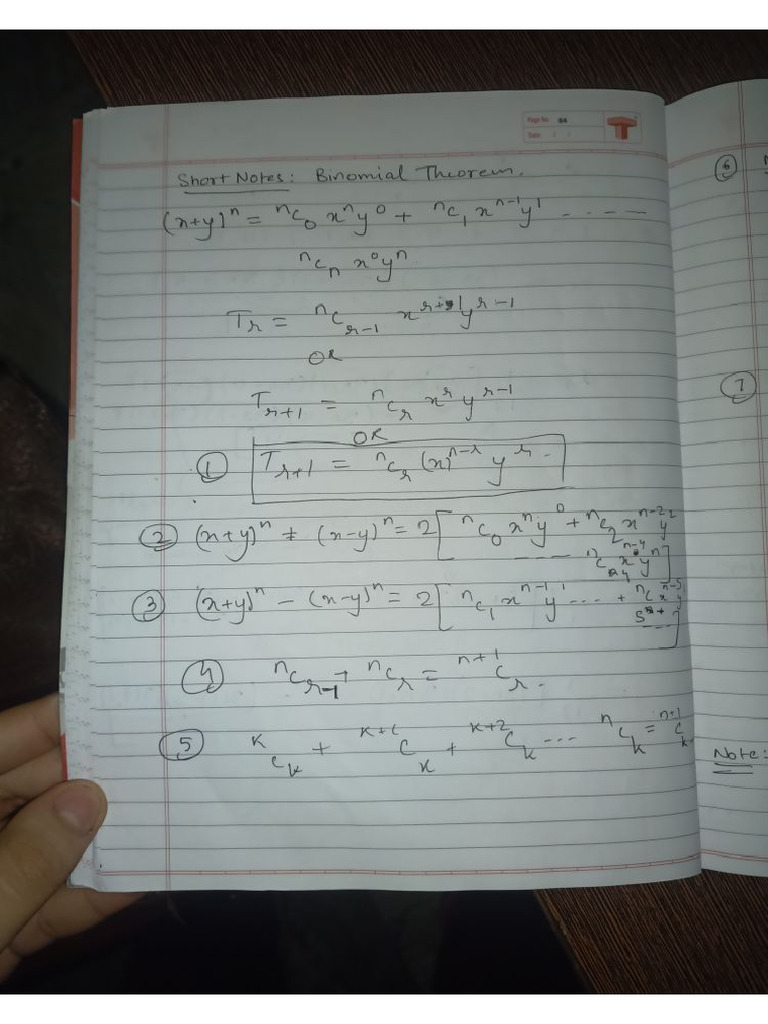 Page No.
Date
T
Short Notes: Binomial Theorem.
(x+y)^n = ^nC_0 x^n y^0 + ^nC_1 x^{n-1} y^1 ------
^nC_n x^0 y^n
T_r = ^nC_{r-1} x^{r+1} y^{r-1}
OR
T_{r+1} = ^nC_r x^r y^{r-1}
OR
① T_{r+1} = ^nC_r (x)^{n-r} y^r.
② (x+y)^n + (x-y)^n = 2[ ^nC_0 x^n y^0 + ^nC_2 x^{n-2} y^2
------ ^nC_4 x^{n-4} y^n ]
③ (x+y)^n - (x-y)^n = 2[ ^nC_1 x^{n-1} y^1 ... + ^nC_5 x^{n-5} y
--- ]
④ ^nC_{r-1} + ^nC_r = ^{n+1}C_r.
⑤ ^kC_k + ^{k+1}C_k + ^{k+2}C_k --- ^nC_k = ^{n+1}C_k
⑥
⑦
Note: